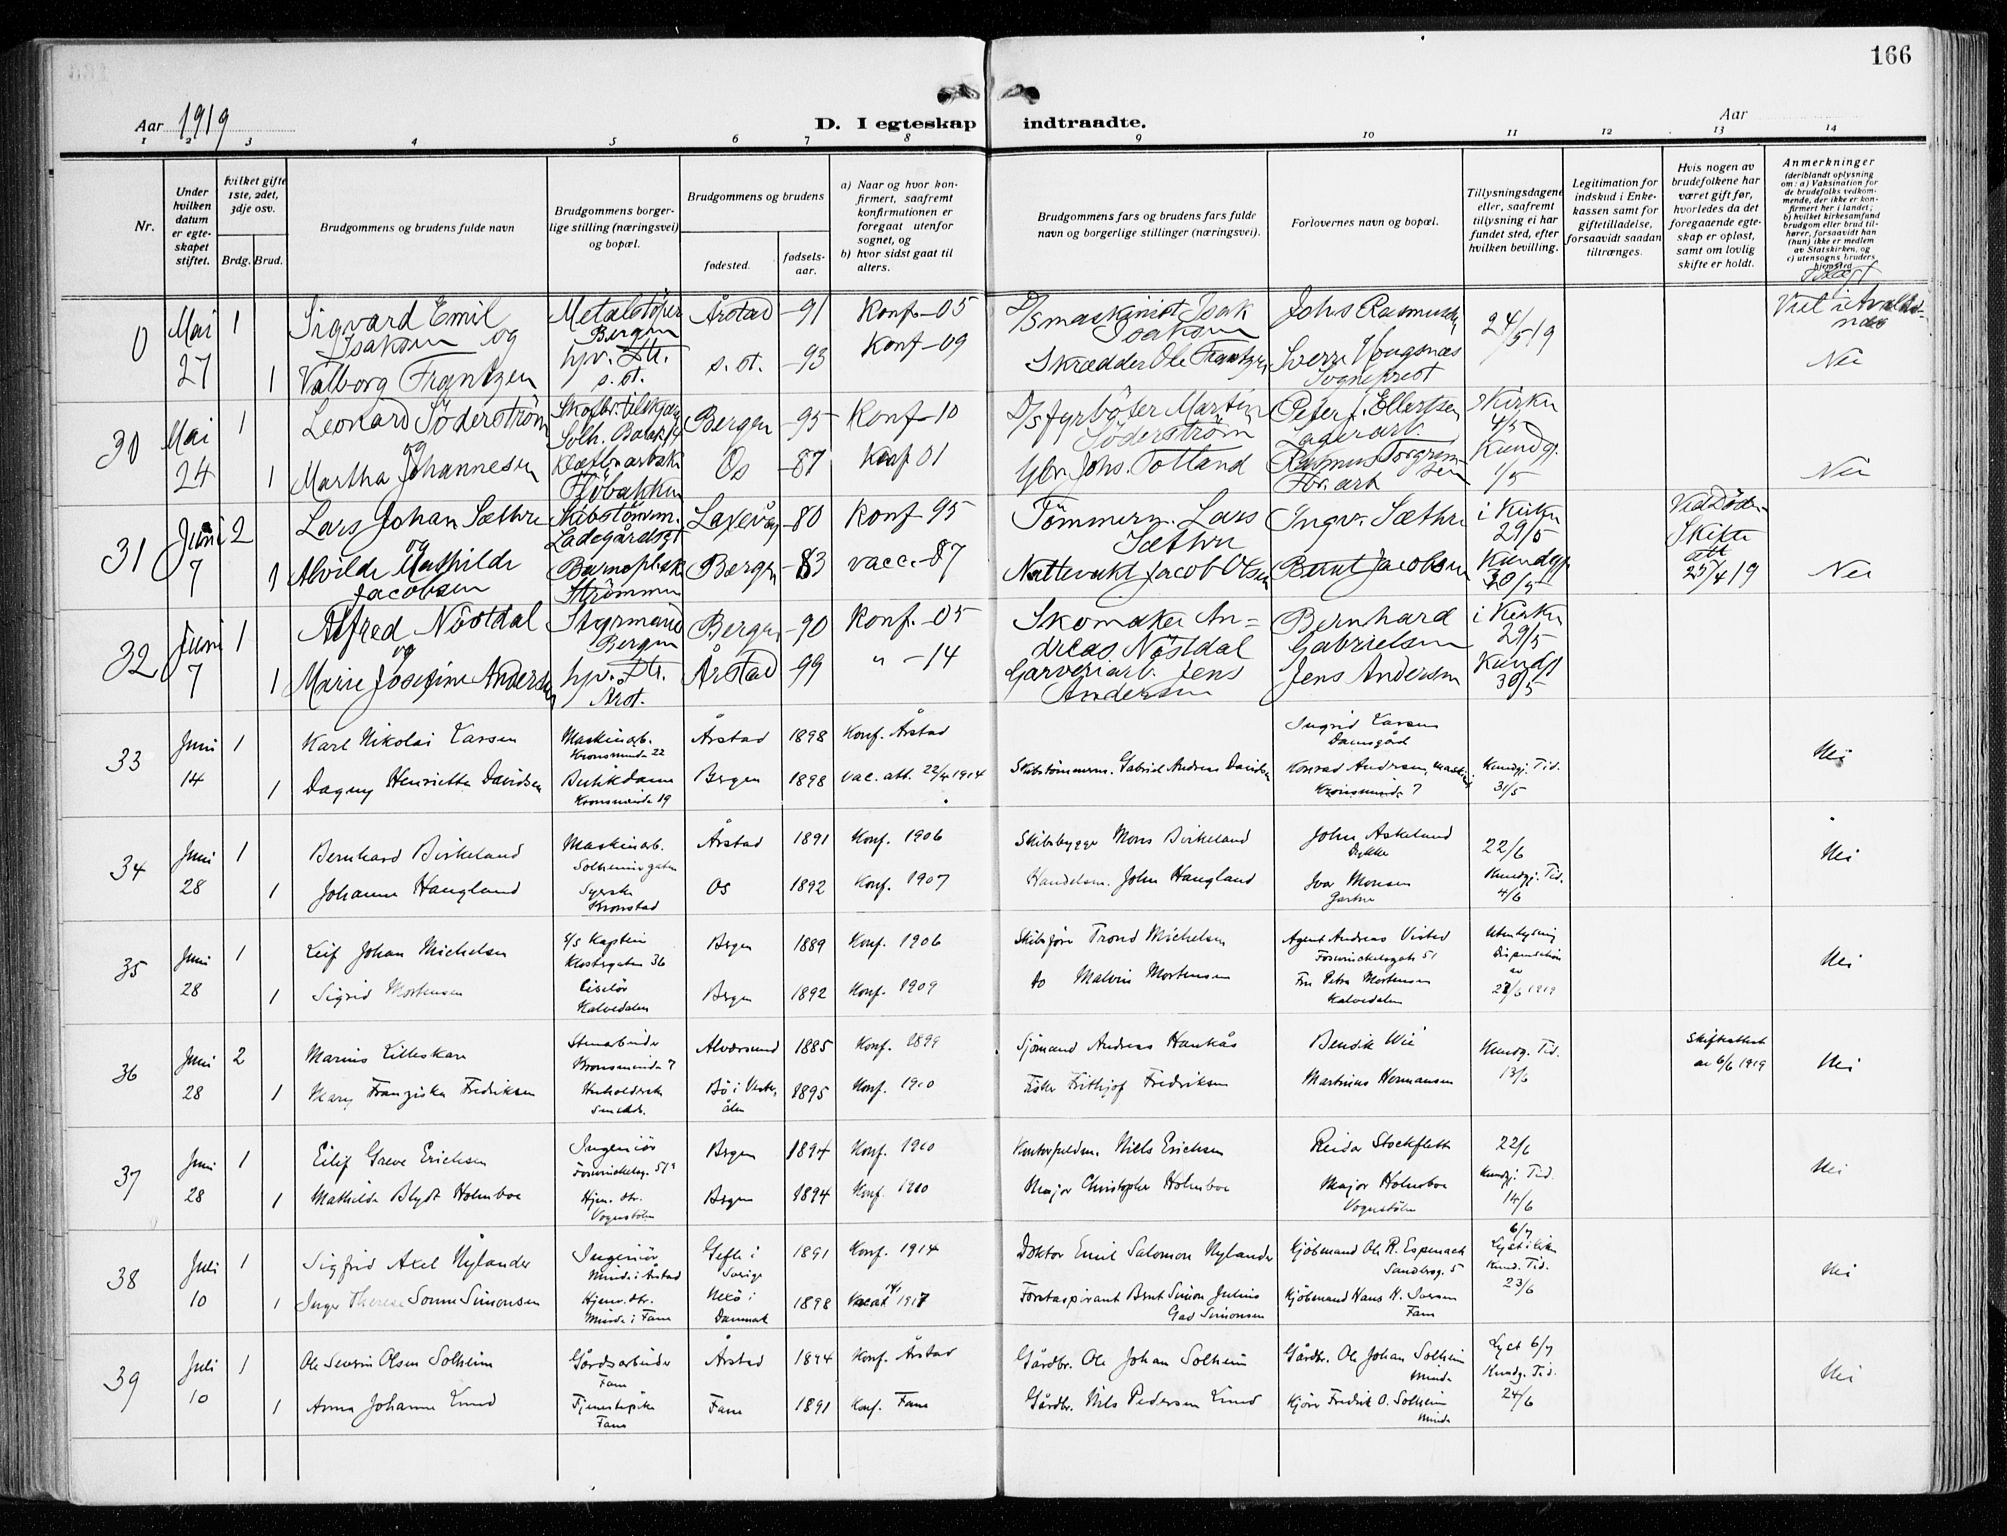 166
Aar 1919
D. I egteskap indtraadte.
Aar
1 2 3 4 5 6 7 8 9 10 11 12 13 14
Nr.
Under hvilken datum er egteskapet stiftet.
Hvilket gifte 1ste, 2det, 3dje osv.
Brdg. Brud.
Brudgommens og brudens fulde navn
Brudgommens borgerlige stilling (næringsvei) og bopæl.
Brudgommens og brudens
fødested.
fødselsaar.
a) Naar og hvor konfirmert, saafremt konfirmationen er foregaat utenfor sognet, og
b) hvor sidst gaat til alters.
Brudgommens fars og brudens fars fulde navn og borgerlige stillinger (næringsvei).
Forlovernes navn og bopæl.
Tillysningsdagene eller, saafremt tillysning ei har fundet sted, efter hvilken bevilling.
Legitimation for indskud i Enkekassen samt for giftetilladelse, forsaavidt saadan tiltrænges.
Hvis nogen av brudefolkene har været gift før, hvorledes da det foregaaende egteskap er opløst, samt om lovlig skifte er holdt.
Anmerkninger (deriblandt oplysning om: a) Vaksination for de brudefolks vedkommende, der ikke er konfirmert her i landet; b) hvilket kirkesamfund brudgom eller brud tilhører, forsaavidt han (hun) ikke er medlem av Statskirken, og c) utensogns bruders hjemsted
0 Mai 1 Sigvard Emil Isaksen og Metalstøper Bergen Årstad -91 Konf-05 D/S maskinist Isak Isaksen Johs Rasmussen 24/5 19
27 1 Valborg Frantzen hjv. dtr. s. st. s. st. -93 Konf-09 Skrædder Ole Frantzen Sverre Sognefrest Nei
30 Mai 1 Leonard Söderström og Bergen -95 Konf-10 D/S fyrbøter Martin Söderström Peter J. Ellertsen Lagerarb. i Kirken 4/5
24 1 Martha Johannesen Os -87 Konf 01 Gbr. Johs. Totland Rasmus Torgersen Fbr. arb Kundg. 1/5 Nei
31 Juni 2 Lars Johan Sæthre og Skibstømm. Ladegårdsgt Laxevåg -80 Konf-95 Tömmerm. Lars Sæthre Ingv. Sæthre i Kirken 29/5 Ved Døden Skifte att 25/4 19
7 1 Alvilde Mathilde Jacobsen Strømmen Bergen -83 vacc.-87 Nattevakt Jacob Olsen Bernt Jacobsen Kundgj 30/5 Nei
32 Juni 1 Alfred Nöstdal og Styrmand Bergen Bergen -90 Konf.-05 Skomaker Andreas Nöstdal Bernhard Gabrielsen i Kirken 29/5
7 1 Marie Josefine Andersen hjv. dtr. Årst. Årstad -99 " -14 Garveriarb. Jens Andersen Jens Andersen Kundgj 30/5
33 Juni 1 Karl Nikolai Larsen Maskinarb. Kronsminde 22 Årstad 1898 Konf. Årstad Ingrid Larsen Damsgård
14 1 Dagny Henriette Davidsen Butikdame Kronsminde 19 Bergen 1898 vac. att. 22/4 1914 Skibstømmerm. Gabriel Andreas Davidsen Konrad Andersen, Kronsminde 7 Kundgj. Tid. 31/5 Nei
34 Juni 1 Bernhard Birkeland Maskinarb. Solheimsgaten Årstad 1891 Konf. 1906 Skibsbygge Mons Birkeland John Askeland Dykker 22/6 Nei
28 1 Johanne Haugland Syerske Kronstad Os 1892 Konf. 1907 Handelsm. John Haugland Ivar Monsen Gartner Kundgj. Tid. 4/6
35 Juni 1 Leif Johan Michelsen Kaptein Klostergaten 36 Bergen 1889 Konf. 1906 Skibsfører Trond Michelsen Agent Andreas Visted Fosswinckelsgate 51 Utenlysning Dispensation av 27/6 1919 Nei
28 1 Sigrid Mortensen Kalvedalen Bergen 1892 Konf. 1909 do Malvin Mortensen Fru Petra Mortensen Kalvedalen
36 Juni 2 Marius Lilleskare Stenarbeider Kronsminde 7 Alversund 1885 Konf. 1899 Sjømand Andreas Haukås Bendik Wie Kundg. Tid. 13/6 Skifteattest av 6/6 1919 Nei
28 1 Mary Franziska Fredriksen Bø i Vesterålen 1895 Konf. 1910 Fisker Fithjof Fredriksen Martinus Hermansen
37 Juni 1 Eilif Greve Erichsen Ingeniør Bergen 1894 Konf. 1910 Niels Erichsen Reidar Stockfleth 22/6 Nei
28 1 Mathilde Blydt Holmboe Hjem. dtr. Vognstølen Bergen 1894 Konf. 1910 Major Christopher Holmboe Major Holmboe Vognstølen Kundgj. Tid. 14/6
38 Juli 1 Sigfrid Axel Nylander Ingeniør Minde i Årstad Gefle i Sverige 1891 Konf. 1914 Doktor Emil Salomon Nylander Kjøbmand Ole R. Espenach Sandbrog. 5 6/7 Lyst i kirken Kund. Tid. 23/6 Nei
10 1 Inger Therese Sonne Simonsen Hjemv. dtr. Minde i Fana Nexø i Danmark 1898 1917 Forstaspirant Bernt Simon Julius Gad Simonsen Kjøbmand Hans H. Iversen Fana
39 Juli 1 Ole Severin Olsen Solheim Gårdsarbeider Fana Årstad 1894 Konf. Årstad Gårdbr. Ole Johan Solheim Gårdbr. Ole Johan Solheim Minde Lyst 6/7 Kundg. Tid. 24/6 Nei
10 1 Anna Johanne Lund Tjenestepike Fana Fana 1891 Konf. Fana Gårdbr. Nils Pedersen Lund Kjører Fredrik O. Solheim Minde